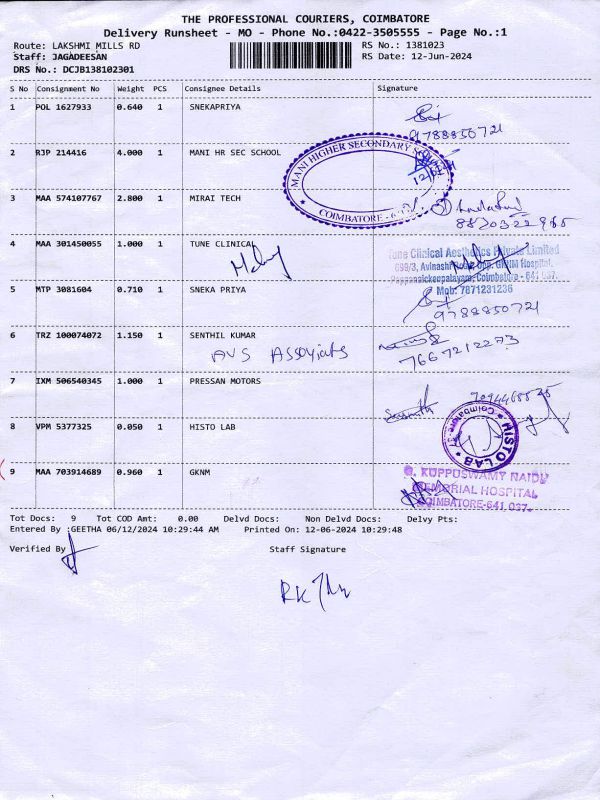 THE PROFESSIONAL COURIERS, COIMBATORE
Delivery Runsheet - MO - Phone No.:0422-3505555 - Page No.:1
Route: LAKSHMI MILLS RD RS No.: 1381023
Staff: JAGADEESAN RS Date: 12-Jun-2024
DRS No.: DCJB138102301
S No Consignment No Weight PCS Consignee Details Signature
1 POL 1627933 0.640 1 SNEKAPRIYA
9788850721
2 RJP 214416 4.000 1 MANI HR SEC SCHOOL
MANI HIGHER SECONDARY
COIMBATORE - 6
3 MAA 574107767 2.800 1 MIRAI TECH
8820322965
4 MAA 301450055 1.000 1 TUNE CLINICAL
Tune Clinical Aesthetics Private Limited
699/3, Avinashi Road, Opp. GKNM Hospital,
Pappanaickenpalayam, Coimbatore - 641 037.
Mob: 7871231236
5 MTP 3081604 0.710 1 SNEKA PRIYA
9788850721
6 TRZ 100074072 1.150 1 SENTHIL KUMAR
AVS ASSoyiats
7667212273
7 IXM 506540345 1.000 1 PRESSAN MOTORS
8 VPM 5377325 0.050 1 HISTO LAB
HISTO LAB
Coimbatore
9 MAA 703914689 0.960 1 GKNM
G. KUPPUSWAMY NAIDU
MEMORIAL HOSPITAL
COIMBATORE-641 037.
Tot Docs: 9 Tot COD Amt: 0.00 Delvd Docs: Non Delvd Docs: Delvy Pts:
Entered By :GEETHA 06/12/2024 10:29:44 AM Printed On: 12-06-2024 10:29:48
Verified By Staff Signature